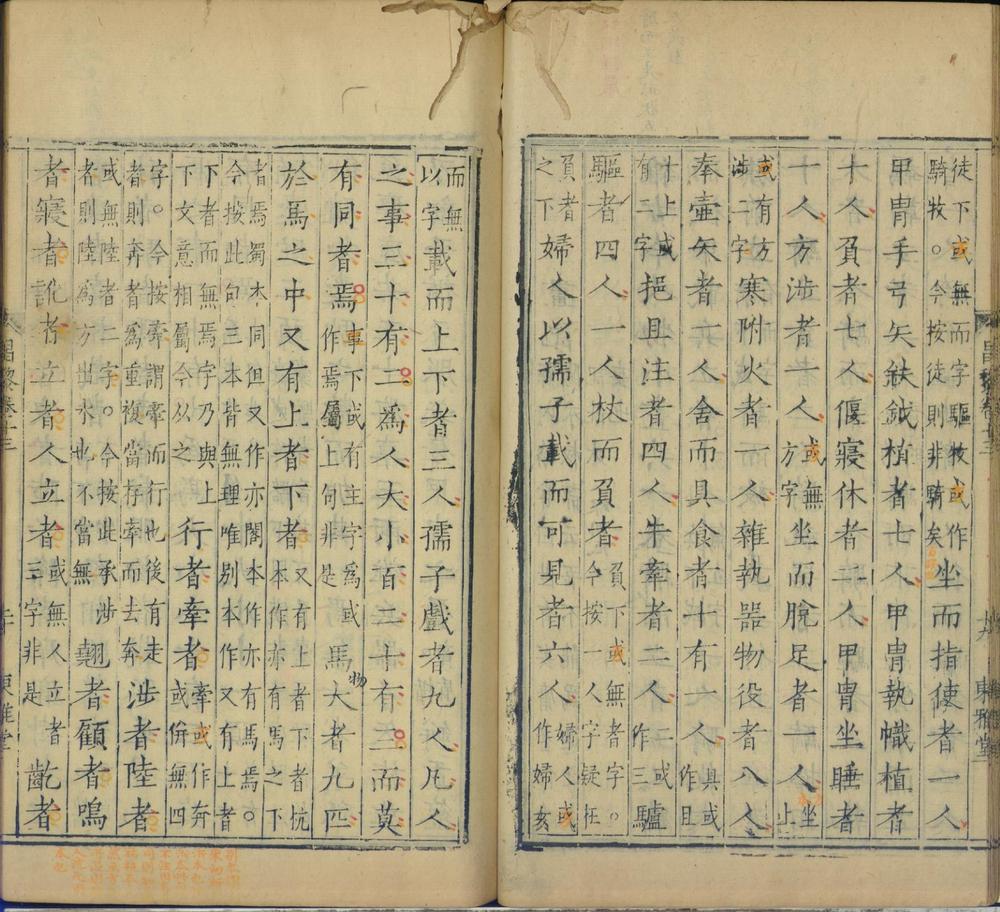 徒下或無而字驅牧或作騎牧。今按徒則非騎矣坐而指使者一人
甲冑手弓矢鈇鉞植者七人甲冑執幟植者
十人負者七人偃寢休者二人甲冑坐睡者
十人方涉者一人或無方字坐而脫足者一人坐上
或有方涉二字寒附火者一人雜執器物役者八人
奉壺矢者一人舍而具食者十有一人具或作且
十上或有二字挹且注者四人牛牽者二人二或作三驢
驅者四人一人杖而負者負下或無者字。今按一人字疑在
負者之下婦人以孺子載而可見者六人婦人或作婦女
而無以字載而上下者三人孺子戲者九人凡人
之事三十有二爲人大小百二十有三而莫
有同者焉事下或有主字爲或作焉屬上句非是馬大者九匹
於馬之中又有上者下者又有上者下者杭本作亦有馬之下
者焉蜀本同但又作亦閣本作亦有馬焉。今按此句三本皆無理唯別本作又有上者
下者而無焉字乃與上下文意相屬今從之行者牽者牽或作奔或併無四
字。今按牽謂牽而行也後有走者則奔者爲重複當存牽而去奔涉者陸者
或無陸者二字。今按此承涉者則陸爲方出水也不當無翹者顧者鳴
者寢者訛者立者人立者或無人立者三字非是齕者
昌黎卷十三
東雅堂